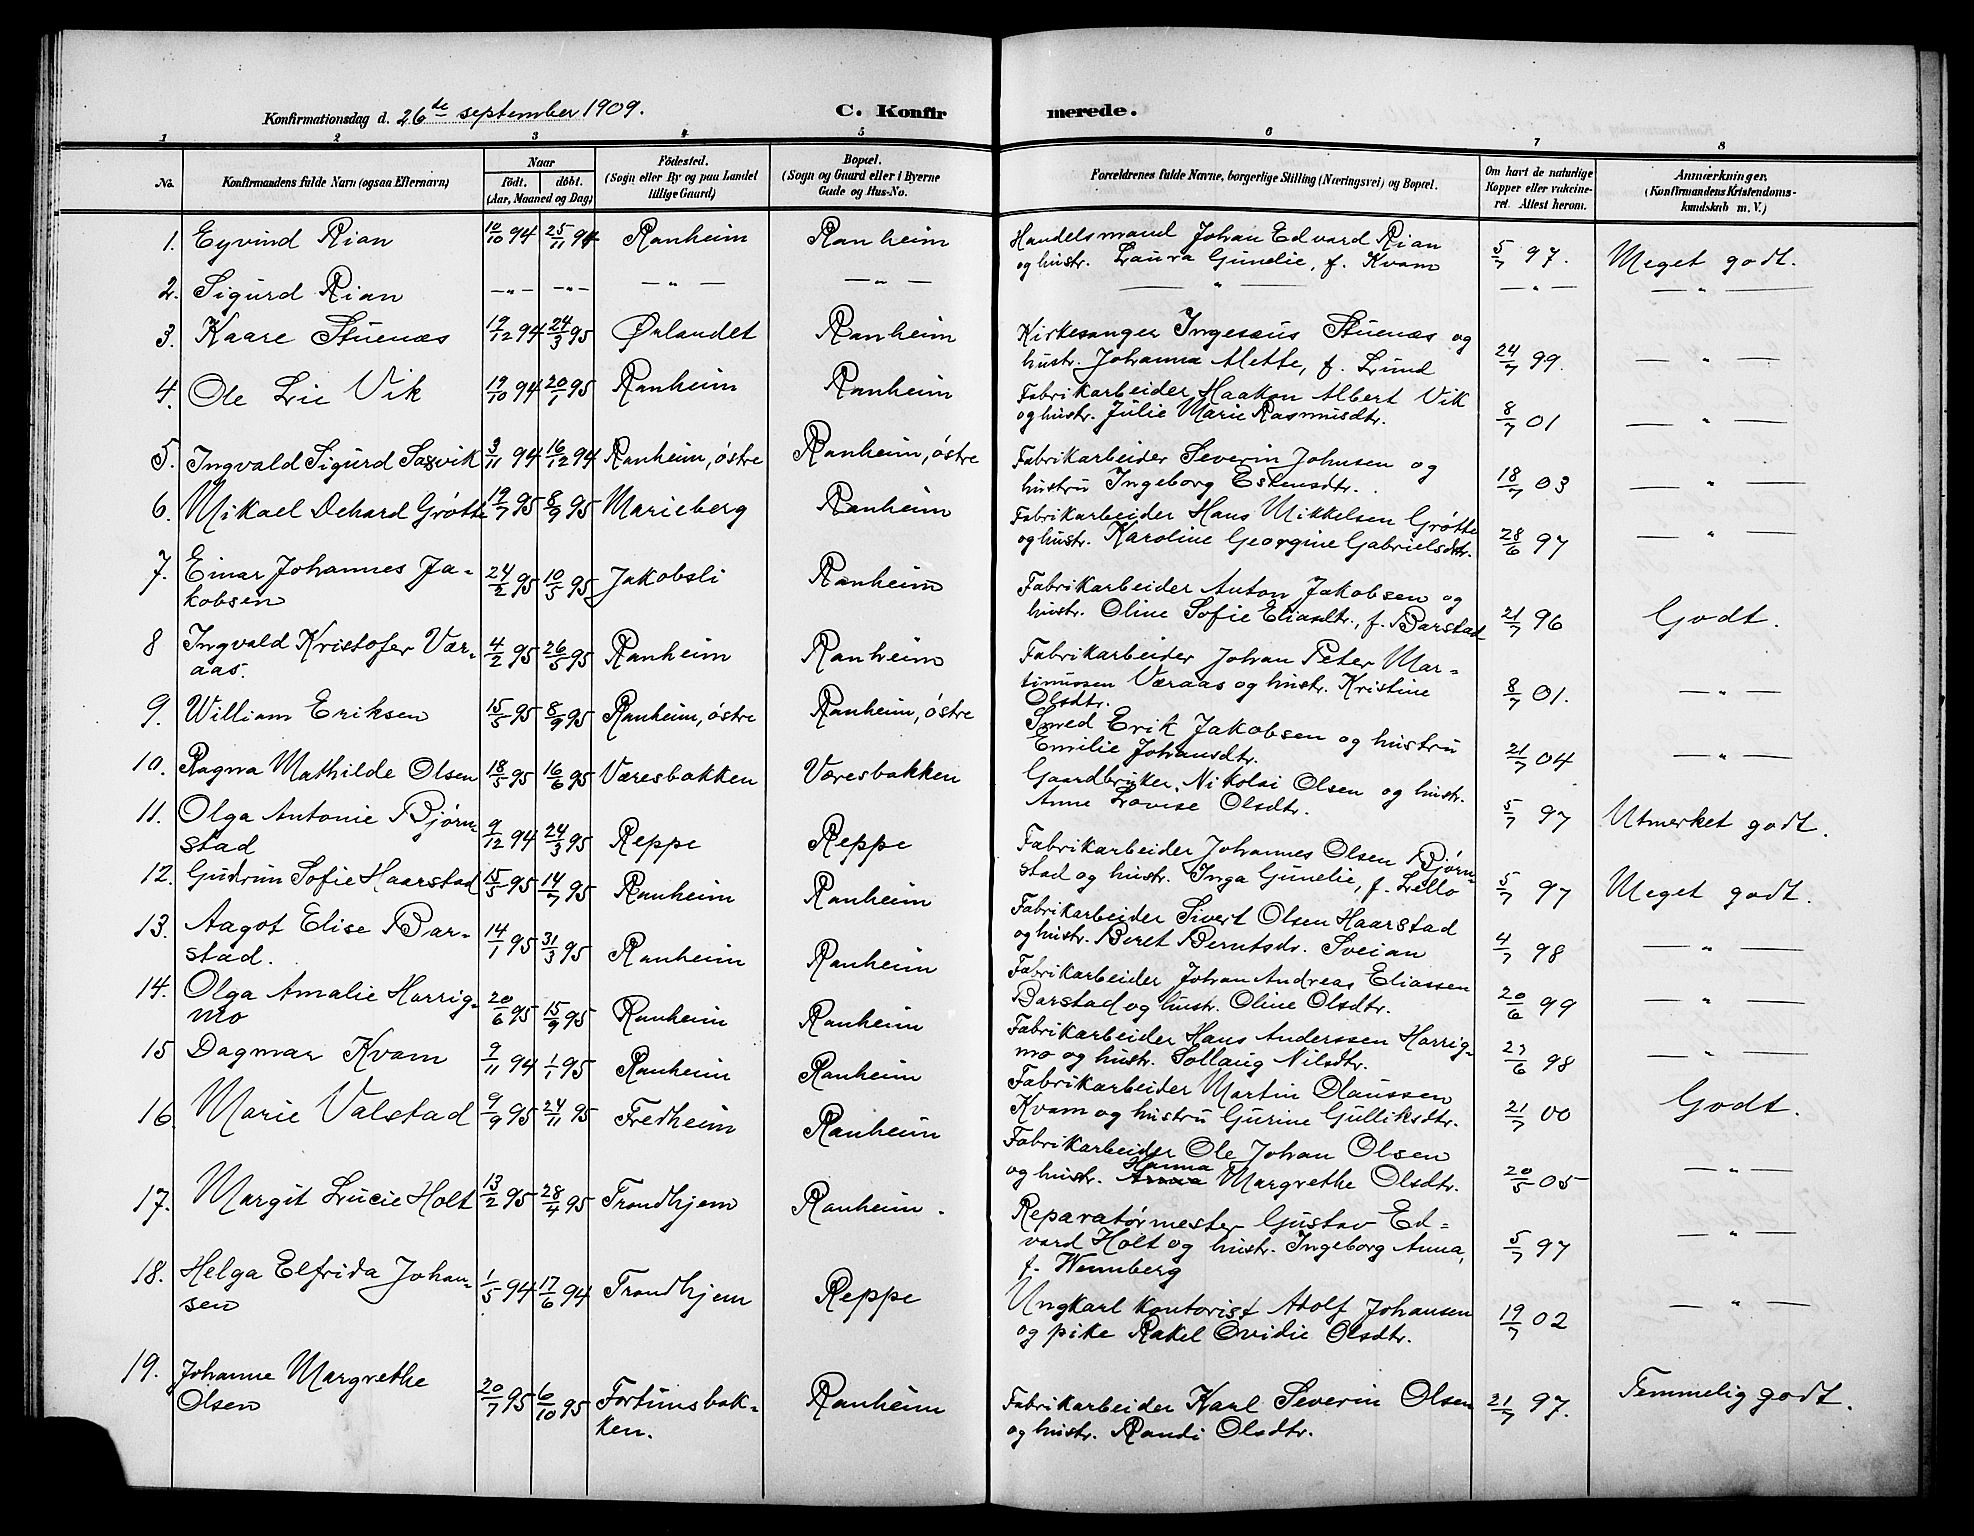 Konfirmationsdag d. 26de september 1909. C. Konfirmerede.
1 2 3 4 5 6 7 8
No. Konfirmandens fulde Navn (ogsaa Efternavn) Naar födt. döbt. (Aar, Maaned og Dag) Födested. (Sogn eller By og paa Landet tillige Gaard) Bopæl. (Sogn og Gaard eller i Byerne Gade og Hus-No. Forældrenes fulde Navne, borgerlige Stilling (Næringsvei) og Bopæl. Om havt de naturlige Kopper eller vakcineret. Attest herom. Anmærkninger. (Konfirmandens Kristendomskundskab m. V.)
1. Eyvind Rian 10/10 94 25/11 94 Ranheim Ranheim Handelsmand Johan Edvard Rian
og hustr. Laura Gunelie, f. Kvam 5/7 97. Meget godt.
2. Sigurd Rian —"— —"— —"— —"— —"— —"— —"—
3. Kaare Stuenæs 19/12 94 24/3 95 Ørlandet Ranheim Kirkesanger Ingesæus Stuenæs og
hustr. Johanna Mette, f. Lund 24/7 99. —"—
4. Ole Lie Vik 19/10 94 20/1 95 Ranheim Ranheim Fabrikarbeider Haakon Albert Vik
og hustr. Julie Marie Rasmusdtr. 8/7 01 —"—
5. Ingvald Sigurd Saxvik 3/11 94 16/12 94 Ranheim, østre Ranheim, østre Fabrikarbeider Severin Johnsen og
hustru Ingeborg Eskensdtr. 18/7 03 —"—
6. Mikael Dehard Grøtte 19/7 95 8/9 95 Marieberg Ranheim Fabrikarbeider Hans Mikkelsen Grøtte
og hustr. Karoline Georgine Gabrielsdtr. 28/6 97 —"—
7. Einar Johannes Ja-
kobsen 24/2 95 10/5 95 Jakobsli Ranheim Fabrikarbeider Anton Jakobsen og
hustr. Oline Sofie Eliasdtr., f. Barstad 21/7 96 Godt.
8 Ingvald Kristofer Vær-
aas. 4/2 95 26/5 95 Ranheim Ranheim Fabrikarbeider Johan Peter Mar-
tinussen Væraas og hustr. Kristine
Olsdtr. 8/7 01. —"—
9. William Eriksen 15/5 95 8/9 95 Ranheim, østre Ranheim, østre Smed Erik Jakobsen og hustru
Emilie Johansdtr. 21/7 04 —"—
10. Ragna Mathilde Olsen 18/5 95 16/6 95 Væresbakken Væresbakken Gaardbruker Nikolai Olsen og hustr.
Anne Lovise Olsdtr. 5/7 97 Utmerket godt.
11. Olga Antonie Bjørn-
stad 9/12 94 24/3 95 Reppe Reppe Fabrikarbeider Johannes Olsen Bjørn-
stad og hustr. Inga Gunelie, f. Lello 5/7 97 Meget godt.
12. Gudrun Sofie Haarstad 15/5 95 14/7 95 Ranheim Ranheim Fabrikarbeider Sivert Olsen Haarstad
og hustr. Beret Berntsdr. Sveian 4/7 98 —"—
13. Aagot Elise Bar-
stad. 14/1 95 31/3 95 Ranheim Ranheim Fabrikarbeider Johan Andreas Eliassen
Barstad og hustr. Oline Olsdtr. 20/6 99 —"—
14. Olga Amalie Harrig-
mo 20/6 95 15/9 95 Ranheim Ranheim Fabrikarbeider Hans Anderssen Harrig-
mo og hustr. Sollaug Nilsdtr. 27/6 98 —"—
15 Dagmar Kvam 9/11 94 1/1 95 Ranheim Ranheim Fabrikarbeider Martin Olaussen
Kvam og hustru Gurine Gulliksdtr. 21/7 00 Godt.
16. Marie Valstad 9/9 95 24/11 95 Fredheim Ranheim Fabrikarbeider Ole Johan Olsen
og hustr. Anna Hanna Margrethe Olsdtr. 20/5 05 —"—
17. Margit Lucie Holt 13/2 95 28/4 95 Trondhjem Ranheim. Reparatørmester Gustav Ed-
vard Holt og hustr. Ingeborg Anna,
f. Wennberg 5/7 97 —"—
18. Helga Elfrida Johan-
sen 1/5 94 17/6 94 Trondhjem Reppe Ungkarl kontorist Adolf Johansen
og pike Rakel Ovidie Olsdtr. 19/7 02 —"—
19. Johanne Margrethe
Olsen 20/7 95 6/10 95 Fortunsbak-
ken. Ranheim Fabrikarbeider Karl Severin Olsen
og hustr. Randi Olsdtr. 21/7 97. Temmelig godt.